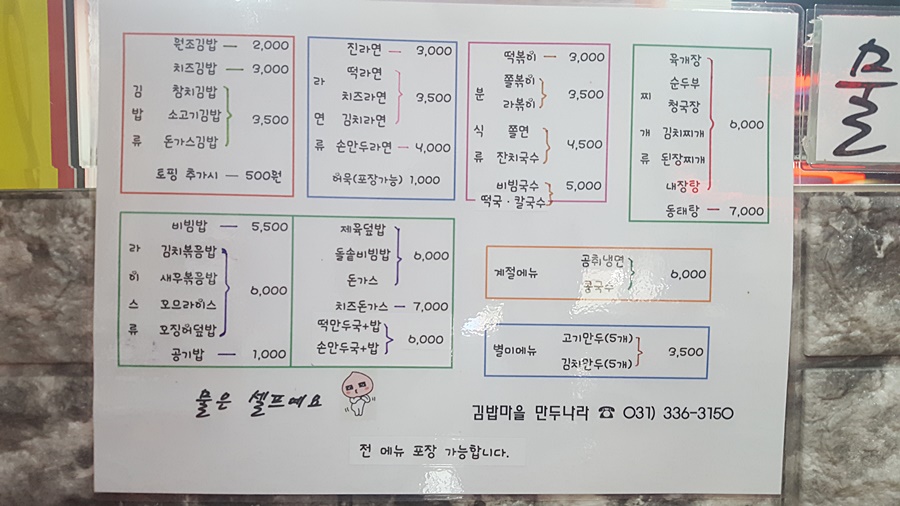 김밥류
원조김밥 — 2,000
치즈김밥 — 3,000
참치김밥
소고기김밥 3,500
돈가스김밥
토핑 추가시 — 500원
라면류
진라면 — 3,000
떡라면
치즈라면 3,500
김치라면
손만두라면 — 4,000
어묵(포장가능) 1,000
분식류
떡볶이 — 3,000
쫄볶이
라볶이 3,500
쫄면
잔치국수 4,500
비빔국수 5,000
떡국·칼국수
찌개류
육개장
순두부
청국장
김치찌개 6,000
된장찌개
내장탕
동태탕 — 7,000
라이스류
비빔밥 — 5,500
김치볶음밥
새우볶음밥
오므라이스 6,000
오징어덮밥
공기밥 — 1,000
제육덮밥
돌솥비빔밥 6,000
돈가스
치즈돈가스 — 7,000
떡만두국+밥
손만두국+밥 6,000
계절메뉴
곰취냉면
콩국수 6,000
별미메뉴
고기만두(5개)
김치만두(5개) 3,500
물은 셀프예요
김밥마을 만두나라 ☎ 031) 336-3150
전 메뉴 포장 가능합니다.
물